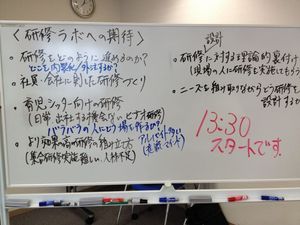 〈研修ラボへの期待〉
・研修をどのように進めるのか?
どこを内製化/外注するか?
・社員・会社に則した研修づくり
・育児シッター向けの研修
(日常 出社する機会ない ビデオ研修)
バラバラの人にどう場を作るか?
・より効果の高い研修の組み立て方
(集合研修実施難しい、人材不足)
アルバイト多い
設計
・研修に対する理論的裏付け
(現場の人に研修を実施してもらう
・ニーズを推し取りながらどう研修を
設計するか
13:30
スタートです。